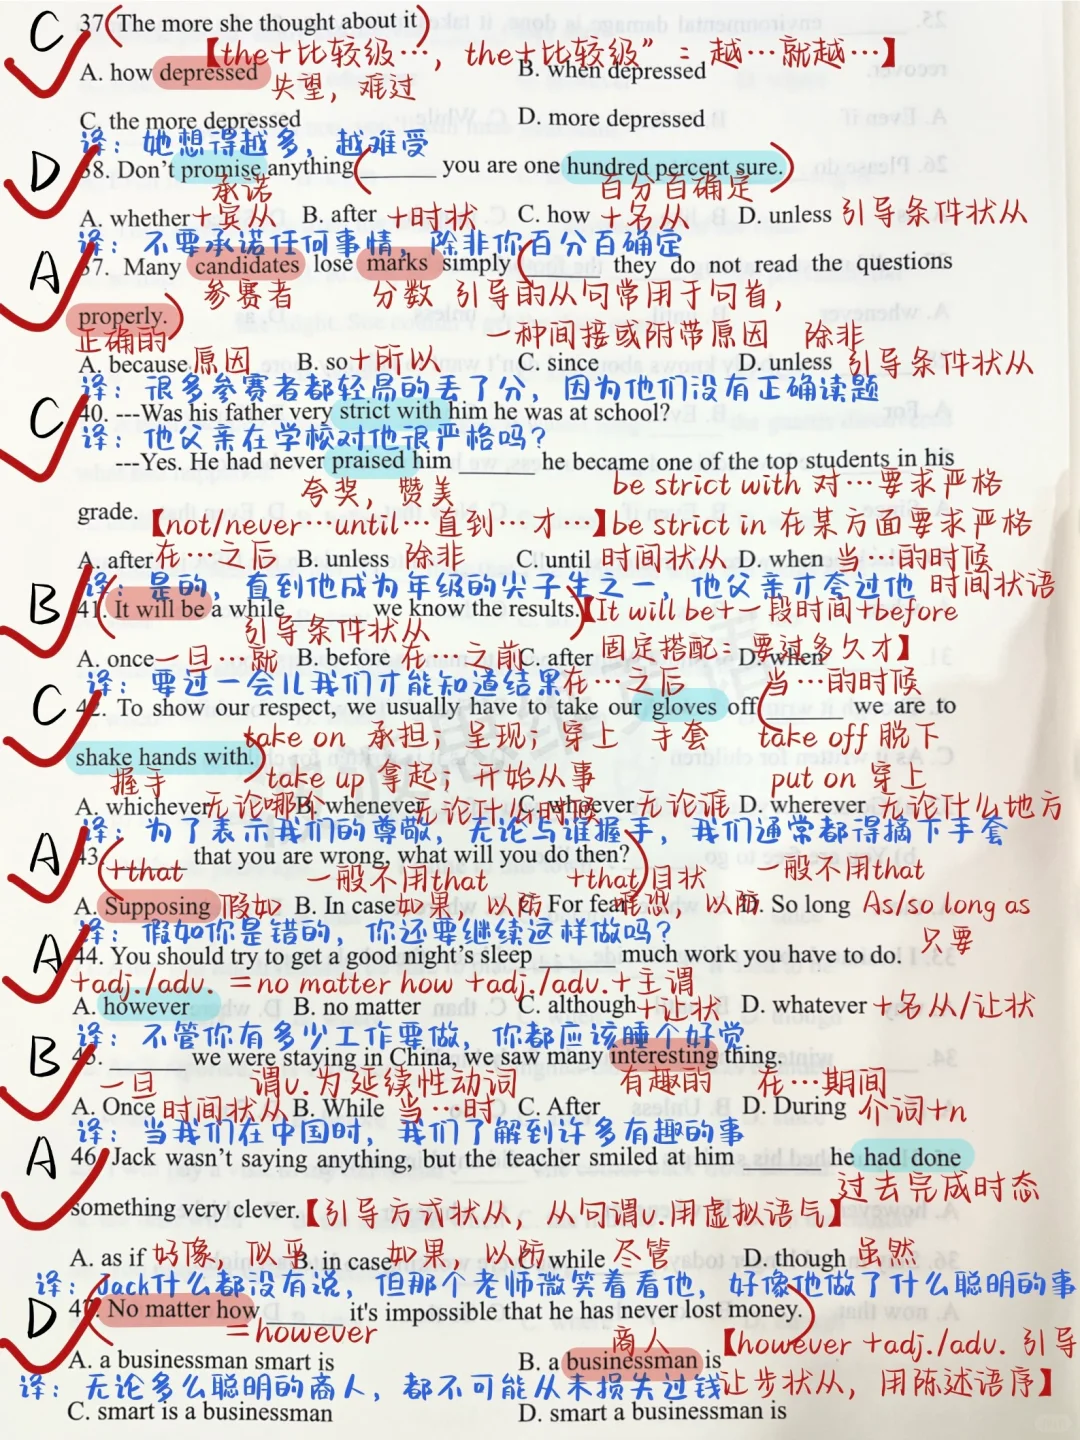 C 37 (The more she thought about it)
【the+比较级…, the+比较级"：越…就越…】
A. how depressed B. when depressed
失望，难过
C. the more depressed D. more depressed
译：她想得越多，越难受
D 38. Don't promise anything (______ you are one hundred percent sure.)
承诺 百分百确定
A. whether+宾从 B. after +时状 C. how +名从 D. unless 引导条件状从
译：不要承诺任何事情，除非你百分百确定
A 37. Many candidates lose marks simply (______ they do not read the questions
参赛者 分数 引导的从句常用于句首，
properly.)
正确的 一种间接或附带原因 除非
A. because 原因 B. so+所以 C. since D. unless 引导条件状从
译：很多参赛者都轻易的丢了分，因为他们没有正确读题
C 40. ---Was his father very strict with him he was at school?
译：他父亲在学校对他很严格吗？
---Yes. He had never praised him ______ he became one of the top students in his
夸奖，赞美 be strict with 对…要求严格
grade. 【not/never…until…直到…才…】be strict in 在某方面要求严格
A. after在…之后 B. unless 除非 C until 时间状从 D. when 当…的时候
译：是的，直到他成为年级的尖子生之一，他父亲才夸过他 时间状语
B 41. (It will be a while ______ we know the results.)【It will be+一段时间+before
引导条件状从
固定搭配：要过多久才】
A. once一旦…就 B. before 在…之前 C. after D. when
译：要过一会儿我们才能知道结果 在…之后 当…的时候
C 42. To show our respect, we usually have to take our gloves off (______ we are to
take on 承担；呈现；穿上 手套 take off 脱下
shake hands with.)
握手 take up 拿起；开始从事 put on 穿上
A. whichever无论哪个 B. whenever无论什么时候 C. whoever无论谁 D. wherever 无论什么地方
译：为了表示我们的尊敬，无论与谁握手，我们通常都得摘下手套
A 43. (______ that you are wrong, what will you do then?)
+that 一般不用that +that 目状 一般不用that
A. Supposing 假如 B. In case如果，以防 C. For fear 恐，以防 D. So long As/so long as
只要
译：假如你是错的，你还要继续这样做吗？
A 44. You should try to get a good night's sleep ______ much work you have to do.
+adj./adv. =no matter how +adj./adv.+主谓
A. however B. no matter C. although+让状 D. whatever +名从/让状
译：不管你有多少工作要做，你都应该睡个好觉
B 45. ______ we were staying in China, we saw many interesting thing.
一旦 谓v.为延续性动词 有趣的 在…期间
A. Once 时间状从 B. While 当…时 C. After D. During 介词+n
译：当我们在中国时，我们了解到许多有趣的事
A 46. Jack wasn't saying anything, but the teacher smiled at him ______ he had done
过去完成时态
something very clever.【引导方式状从，从句谓v.用虚拟语气】
A. as if 好像，似乎 B. in case如果，以防 while 尽管 D. though 虽然
译：Jack什么都没有说，但那个老师微笑着看他，好像他做了什么聪明的事
D 47. (No matter how ______ it's impossible that he has never lost money.)
=however 商人 【however +adj./adv. 引导
A. a businessman smart is B. a businessman is
译：无论多么聪明的商人，都不可能从未损失过钱 让步状从，用陈述语序】
C. smart is a businessman D. smart a businessman is